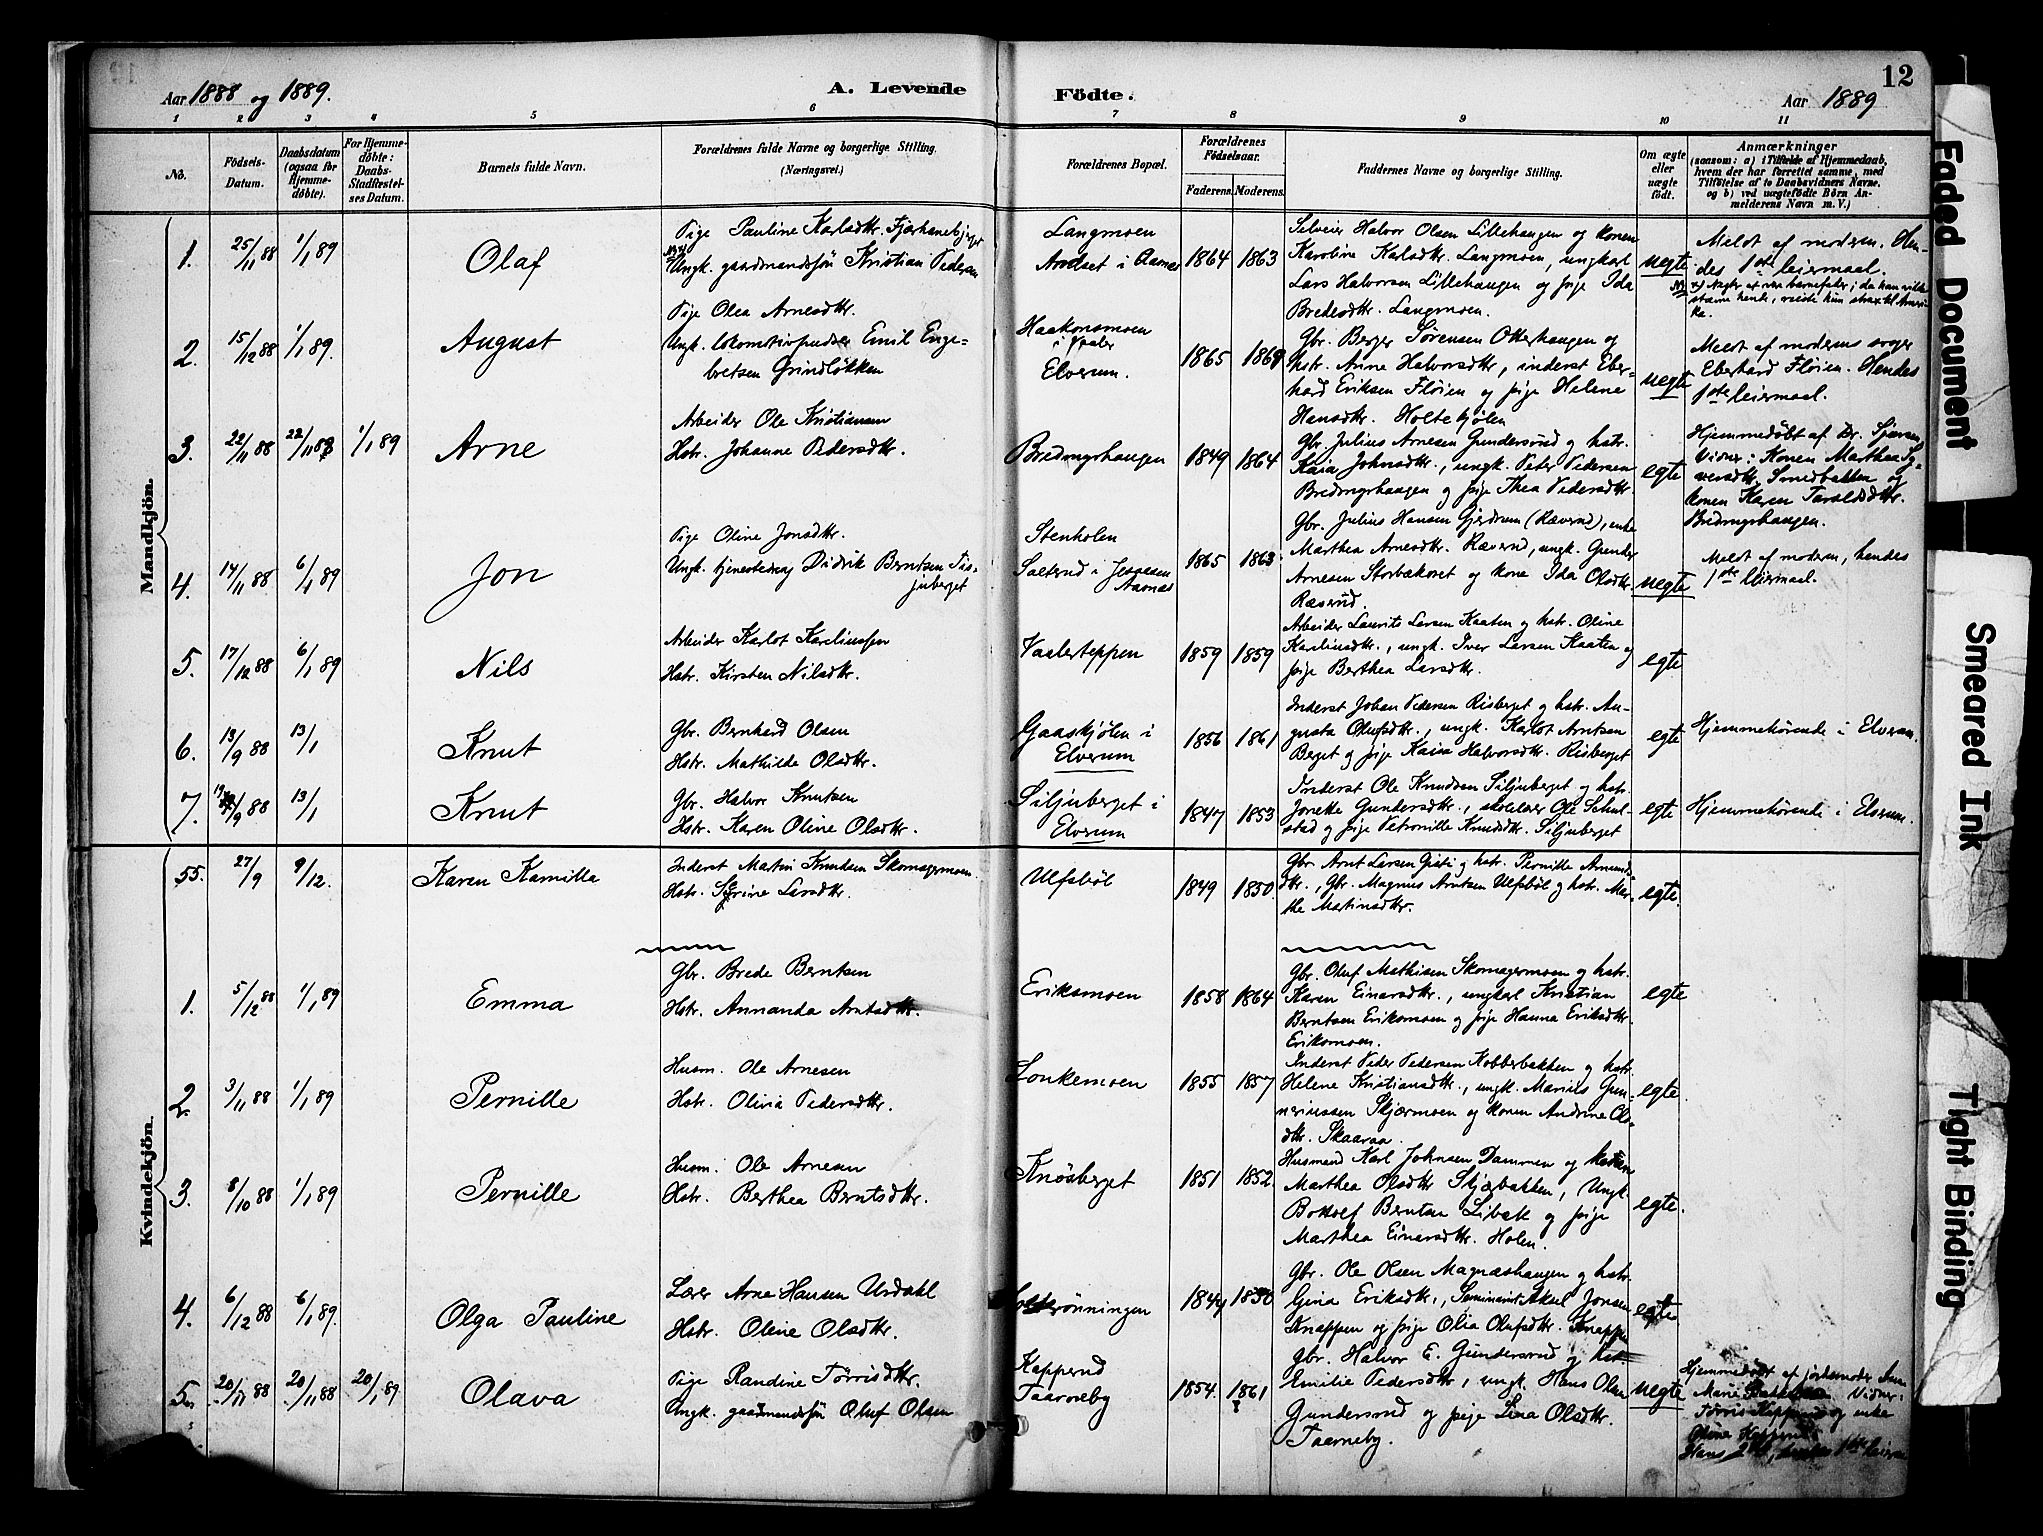 Aar 1888 og 1889.
A. Levende Födte.
Aar 1889
12
1 2 3 4 5 6 7 8 9 10 11
No.
Födsels-
Datum.
Daabsdatum
(ogsaa for
Hjemme-
döbte).
For Hjemme-
döbte:
Daabs-
Stadfæstel-
ses Datum.
Barnets fulde Navn.
Forældrenes fulde Navne og borgerlige Stilling.
(Næringsvei.)
Forældrenes Bopæl.
Forældrenes
Födselsaar.
Faderens. Moderens.
Faddernes Navne og borgerlige Stilling.
Om ægte
eller
uægte
födt.
Anmærkninger
(saasom: a) i Tilfælde af Hjemmedaab,
hvem der har forrettet samme, med
Tilföielse af to Daabsvidners Navne,
og b) ved uægtefödte Börn An-
melderens Navn m. V.)
Mandkjön.
1. 25/11 88 1/1 89
Olaf
Pige Pauline Karlsdtr. Fjærhaneberget
Ungk. gaardmandssøn Kristian Pedersen
Langmoen
Arndset i Aasnes
1864 1863
Selveier Halvor Olsen Lillehaugen og konen
Karoline Karlsdtr. Langmoen, ungkarl
Lars Halvorsen Lillehaugen og pige Ida
Bredesdtr. Langmoen.
uegte
Meldt af moderen. Hen-
des 1ste leiermaal.
2. 15/12 88 1/1 89.
August
Pige Olea Arnesdtr.
Ungk. lokomotivpudser Emil Enge-
bretsen Grindløkken
Haakonsmoen
i Vaaler
Elverum.
1865 1869
Gbr. Berger Sørensen Otterhaugen og
hstr. Anne Halvorsdtr., inderst Eber-
hard Eriksen Fløien og pige Helene
Hansdtr. Holtekjølen
uegte
Meldt af moderens svoger
Eberhard Fløien. Hendes
1ste leiermaal.
3. 22/11 88 22/11 88 1/1 89
Arne
Arbeider Ole Kristiansen
Hstr. Johanne Pedersdtr.
Bredmyrhaugen
1849 1864
Gbr. Julius Arnesen Gundersrud og hstr.
Kaia Johnsdtr., ungk. Peter Pedersen
Bredmyrhaugen og pige Thea Pedersdtr.
egte
Hjemmedøbt af Br. Sjørsen
Vidner: Konen Marthea Sy-
versdtr. Smedbakken og
konen Karen Taraldsdtr.
Bredmyrhaugen.
4. 14/11 88 6/1 89
Jon
Pige Oline Jonsdtr.
Ungk. tjenestedreng Didrik Berntsen Tis-
juberget
Stenholen
Sæterud i Jessesen
Aasnes
1865 1863
Gbr. Julius Hansen Gjerdrum (Ræverud), enke
Marthea Arnesdtr. Ræverud, ungk. Gunder
Arnesen Storbækoset og kone Ida Olsdtr.
Ræverud.
uegte
Meldt af moderen, hendes
1ste leiermaal.
5. 17/12 88 6/1 89
Nils
Arbeider Karlot Karelinssen
Hstr. Kirsten Nilsdtr.
Vaalerteppen
1859 1859
Arbeider Laurits Larsen Kaaten og hstr. Oline
Karlinsdtr., ungk. Iver Larsen Kaaten og
pige Berthea Larsdtr.
egte
6. 13/9 88 13/1
Knut
Gbr. Bernhard Olsen
Hstr. Mathilde Olsdtr.
Gaaskjølen i
Elverum
1856 1861
Inderst Johan Pedersen Risberget og hstr. Au-
gusta Olufsdtr., ungk. Karlot Arntsen
Berget og pige Kaisa Halvorsdtr. Risberget
egte
Hjemmehørende i Elverum.
7. 19/9 88 13/1
Knut
Gbr. Halvor Knutsen
Hstr. Karen Oline Olsdtr.
Siljuberget i
Elverum
1847 1853
Inderst Ole Knudsen Siljuberget og hstr.
Jonette Gundersdtr., skolelærer Ole Schul-
stad og pige Petronille Knudsdtr. Siljuberget
egte
Hjemmehørende i Elverum.
Kvindekjön.
55. 27/9 9/12.
Karen Kamilla
Inderst Martin Knudsen Skomagermoen
Hstr. Sørine Larsdtr.
Ulfsbøl
1849 1850.
Gbr. Arnt Larsen Gjisti og hstr. Pernille Amunds-
dtr., Gbr. Magnus Arntsen Ulfsbøl og hstr. Mar-
the Martinsdtr.
egte.
1. 5/12 88 1/1 89
Emma
Gbr. Brede Berntsen
Hstr. Annanda Arntsdtr.
Eriksmoen
1858 1864
Gbr. Oluf Mathisen Skomagermoen og hstr.
Karen Einarsdtr., ungkarl Kristian
Berntsen Eriksmoen og pige Hanna Eriksdtr.
Eriksmoen.
egte
2. 3/11 88 1/1 89
Pernille
Husm. Ole Arnesen
Hstr. Olivia Pedersdtr.
Lonkemoen
1855 1857
Inderst Peder Pedersen Kobberbakken og hstr.
Helene Kristiansdtr., ungk. Marius Gun-
neriussen Skjærmoen og konen Andrine Ols-
dtr. Skaaraa.
egte.
3. 8/10 88 1/1 89
Pernille
Husm. Ole Arnesen
Hstr. Berthea Berntsdtr.
Knøsberget
1851 1852
Husmand Karl Johnsen Dammen og konen
Marthea Olsdtr Skjærbakken, Ungk.
Bottolf Berntsen Libæk og pige
Marthea Einarsdtr. Holen.
egte.
4. 6/12 88 6/1 89.
Olga Pauline
Lærer Arne Hansen Urdahl
Hstr. Oline Olsdtr.
rønningen
1844 1850
Gbr. Ole Olsen Magnæshaugen og hstr.
Gina Eriksdtr., Seminarist Aksel Jonsen
Knappen og pige Olia Olufsdtr. Knappen
egte
5. 20/11 88 20/11 88 20/1 89
Olava
Pige Randine Tørrisdtr.
Ungk. gaardmandssøn Oluf Olsen
Kapperud
Taarneby
1854. 1861
Gbr. Halvor E. Gundersrud og hst-
Emilie Pedersdtr., ungk. Hans Olsen
Gundersrud og pige Lina Olsdtr.
Taarneby.
uegte
Hjemmedøbt af jordemoder
Marie Vidner:
Tørris Kapperud og enke
Oline Kapperud
Hans 2det, 1ste leierm
Faded Document
Smeared Ink
Tight Binding